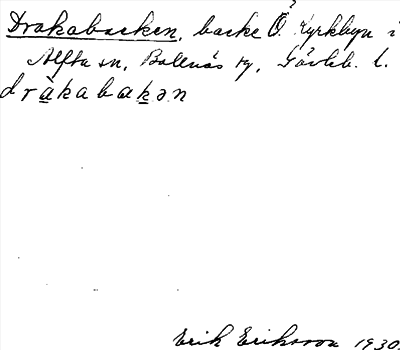 Drakabacken, backe Ö. Kyrkbyn i
Alfta sn, Bollnäs kg, Gävleb. l.
dràkabakən
Erik Eriksson 1930.